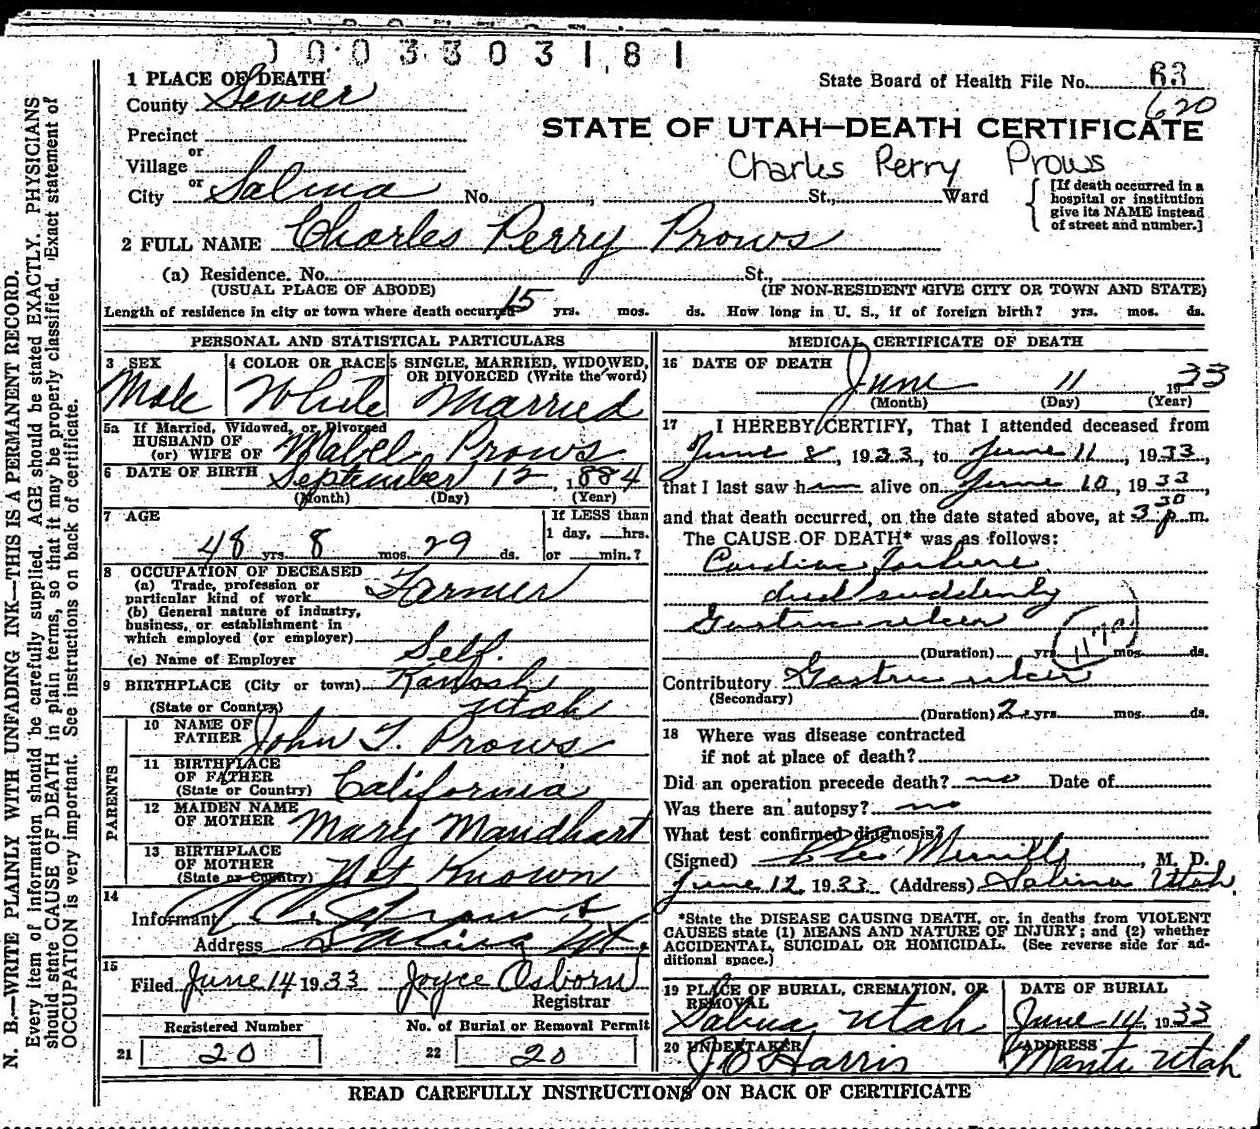 0003303181
1 PLACE OF DEATH
County Sevier
State Board of Health File No. 63
620
Precinct
or
Village
or
City Salina No. St., Ward
STATE OF UTAH—DEATH CERTIFICATE
Charles Perry Prows
[If death occurred in a
hospital or institution
give its NAME instead
of street and number.]
2 FULL NAME Charles Perry Prows
(a) Residence. No. St.,
(USUAL PLACE OF ABODE) (IF NON-RESIDENT GIVE CITY OR TOWN AND STATE)
Length of residence in city or town where death occurred 15 yrs. mos. ds. How long in U. S., if of foreign birth? yrs. mos. ds.
PERSONAL AND STATISTICAL PARTICULARS
3 SEX
Male
4 COLOR OR RACE
White
5 SINGLE, MARRIED, WIDOWED,
OR DIVORCED (Write the word)
Married
5a If Married, Widowed, or Divorced
HUSBAND OF
(or) WIFE OF Mabel Prows
6 DATE OF BIRTH September 12, 1884
(Month) (Day) (Year)
7 AGE
48 yrs 8 mos 29 ds.
If LESS than
1 day, hrs.
or min.?
8 OCCUPATION OF DECEASED
(a) Trade, profession or
particular kind of work Farmer
(b) General nature of industry,
business, or establishment in
which employed (or employer)
(c) Name of Employer Self.
9 BIRTHPLACE (City or town) Kanosh
(State or Country) Utah
PARENTS
10 NAME OF
FATHER John T. Prows
11 BIRTHPLACE
OF FATHER
(State or Country) California
12 MAIDEN NAME
OF MOTHER Mary Maudhart
13 BIRTHPLACE
OF MOTHER
(State or Country) Not Known
14
Informant Prows
Address Salina Ut.
15
Filed June 14 1933 Joyce Osborn
Registrar
Registered Number
21 20
No. of Burial or Removal Permit
22 20
MEDICAL CERTIFICATE OF DEATH
16 DATE OF DEATH
June 11 1933
(Month) (Day) (Year)
17 I HEREBY CERTIFY, That I attended deceased from
June 8, 1933, to June 11, 1933,
that I last saw him alive on June 10, 1933,
and that death occurred, on the date stated above, at 3 30 p.m.
The CAUSE OF DEATH* was as follows:
Cardiac Failure
died suddenly
Gastric ulcer
117a
(Duration) yrs mos ds.
Contributory Gastric ulcer
(Secondary)
(Duration) 2 yrs. mos. ds.
18 Where was disease contracted
if not at place of death?
Did an operation precede death? no Date of
Was there an autopsy? no
What test confirmed diagnosis?
(Signed) Merrill, M. D.
June 12, 1933 (Address) Salina Utah.
*State the DISEASE CAUSING DEATH, or, in deaths from VIOLENT
CAUSES state (1) MEANS AND NATURE OF INJURY; and (2) whether
ACCIDENTAL, SUICIDAL OR HOMICIDAL. (See reverse side for ad-
ditional space.)
19 PLACE OF BURIAL, CREMATION, OR
REMOVAL
Salina, Utah
DATE OF BURIAL
June 14, 1933
20 UNDERTAKER
J O Harris
ADDRESS
Manti Utah
READ CAREFULLY INSTRUCTIONS ON BACK OF CERTIFICATE
N. B.—WRITE PLAINLY WITH UNFADING INK—THIS IS A PERMANENT RECORD.
Every item of information should be carefully supplied. AGE should be stated EXACTLY. PHYSICIANS
should state CAUSE OF DEATH in plain terms, so that it may be properly classified. Exact statement of
OCCUPATION is very important. See instructions on back of certificate.